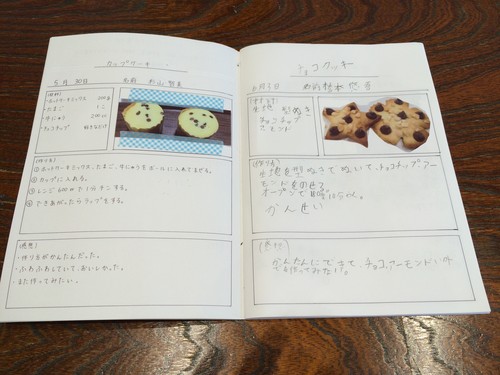 カップケーキ
5月30日
名前
材料
・ホットケーキミックス 200g
・たまご 1こ
・牛にゅう
・チョコチップ 好きなだけ
作り方
①ホットケーキミックス、たまご、牛にゅうをボールに入れてまぜる。
②カップに入れる。
③レンジ600wで1分チンする。
④できあがったらラップをする。
感想
・作り方がかんたんだった。
・ふわふわしていて、おいしかった。
・また作ってみたい。
チョコクッキー
名前
生地 型ぬき
チョコチップ
アーモンド
作り方
生地を型でぬいて、チョコチップ、アー
モンドをのせる
オーブンで
かんせい
かんたんにできて、チョコ、アーモンド